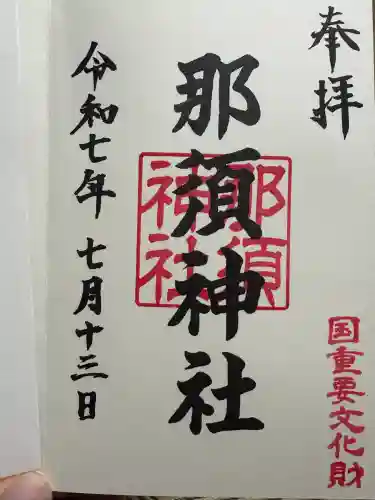 奉拝
国重要文化財
那須神社
那須
神社
令和七年七月十三日